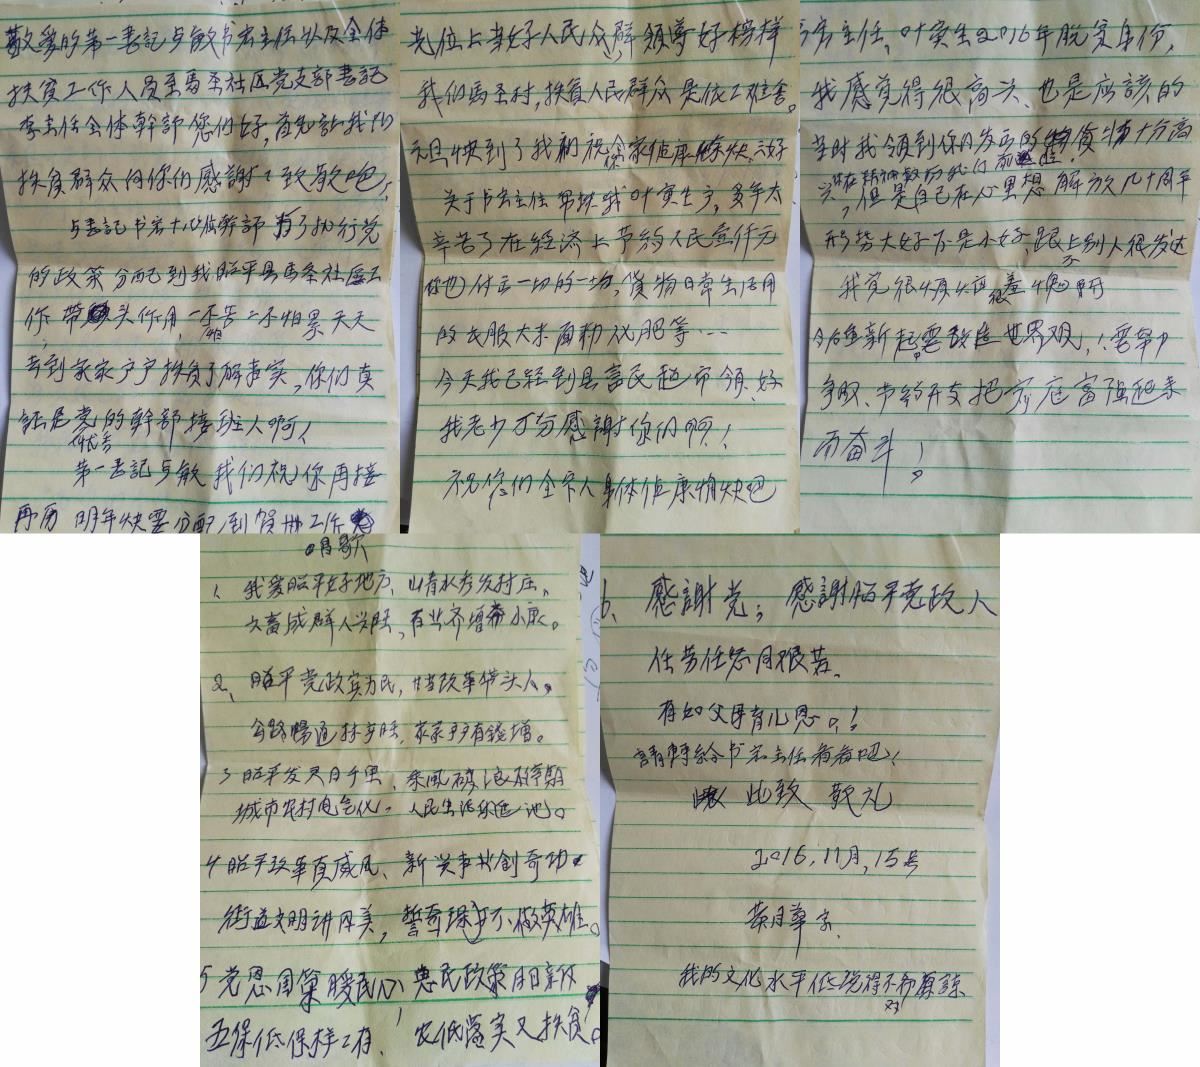 敬爱的第一書記与敏书宏主任以及全体
扶贫工作人员至馬圣社区党支部書記
李主任全体幹部您们好,首先让我们
扶贫群众向你们感謝!致敬吧!
与書記书宏主任幹部 为了执行党
的政策分配到我昭平县馬圣社区工
作,带头作用,一不怕苦二不怕累天天
去到家家户户扶贫了解事实,你们真
証是党的优秀幹部接班人啊!
第一書記与敏我们祝你再接
再历 明年快要分配到贺州工作
岗位上当好人民众群领导好榜样
我们馬圣村,扶貧人民群众是依
元旦快到了我初祝你全家健康愉快
关于书宏主任帮扶我叶寅生户,多年太
辛苦了在经济上节约人民
付出一切的一切,貨物日常生活用
的衣服大米面粉化肥等…
今天我已经到县富民超市领、好
我老少万分感謝你们啊!
祝您们全家人身体健康愉快吧
书宏主任,叶寅生2016年脱贫身份,
我感觉得很高兴、也是应該的
当时我领到你们发的物資十分高
兴,但是自己在心里想 解放几十周年
形势大好不是小好,跟不上别人很发达
我觉很很羞愧啊
今后重新起要改造世界观,!要举力
争取、节約开支把家庭富强起来
而奋斗!
唱歌
1、 我爱昭平好地方,山青水秀发村庄。
六畜成群人兴旺,有些齐增奔小康。
2、 昭平党政实为民,甘当改革带头人。
公路暢通林字旺,家家户户有錢增。
3 昭平发展日千里,乘風破浪不停期
城市农村电气化,人民生活
4 昭平改革真威风、新兴事业创奇功。
街道文明讲风美,誓奪球手做英雄。
5 党恩国策暖民心,惠民政策用日新
五保低保样样有、农低落实又扶貧。
6、 感謝党;感謝昭平党政人
任劳任怨用艰苦、
有如父母育儿恩。!
請轉给书宏主任看看吧!
此致 敬礼
2016,11月,15号
黄月華字
我的文化水平低说得不对原諒